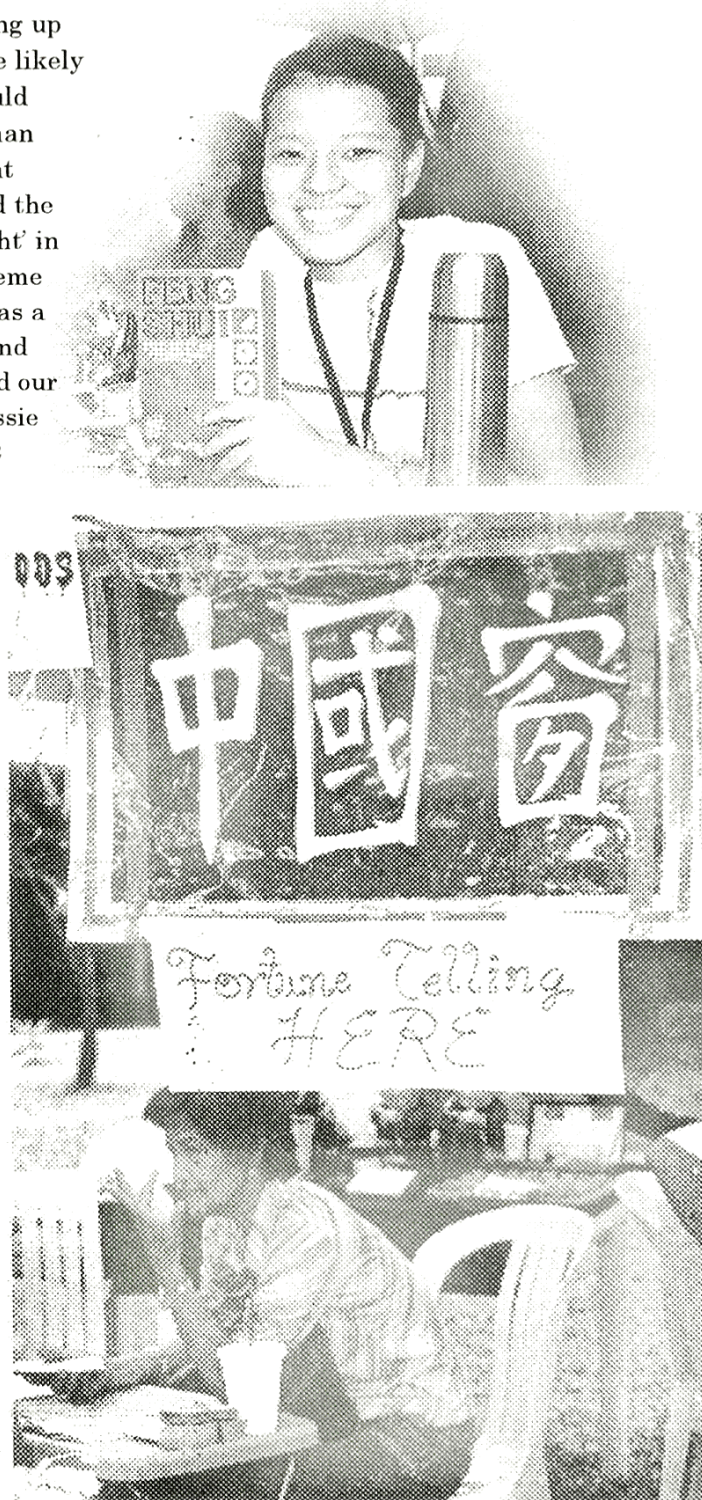 ng up
e likely
uld
an
t
d the
ht' in
eme
as a
nd
d our
ssie
FENG
SHUI
ODS
中國窗
Fortune Telling
HERE